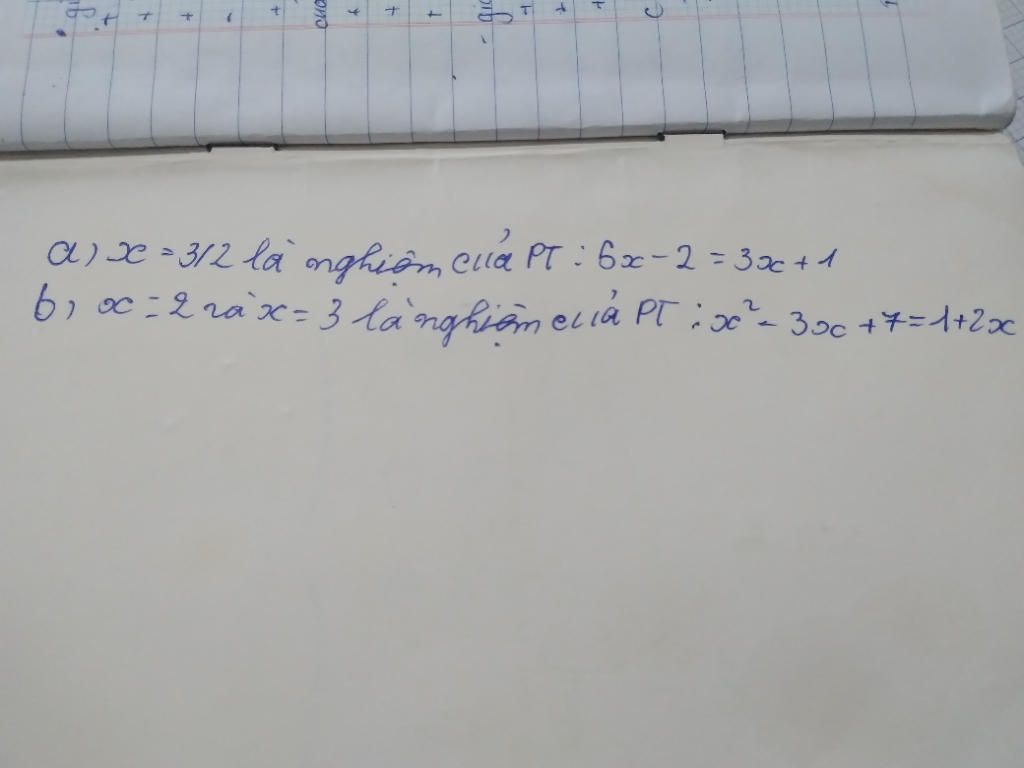 a) x = 3/2 là nghiệm của PT : 6x - 2 = 3x + 1
b) x = 2 và x = 3 là nghiệm của PT : x² - 3x + 7 = 1 + 2x